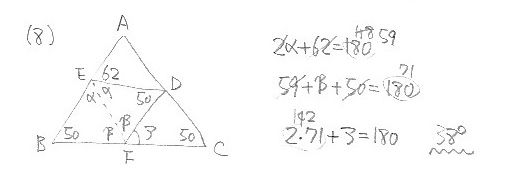 (8)
A
E 62
α α
50 D
B 50 β β 3 50 C
F
2α+62=180 118 59
59+β+50=180 71
142
2·71+3=180 38°